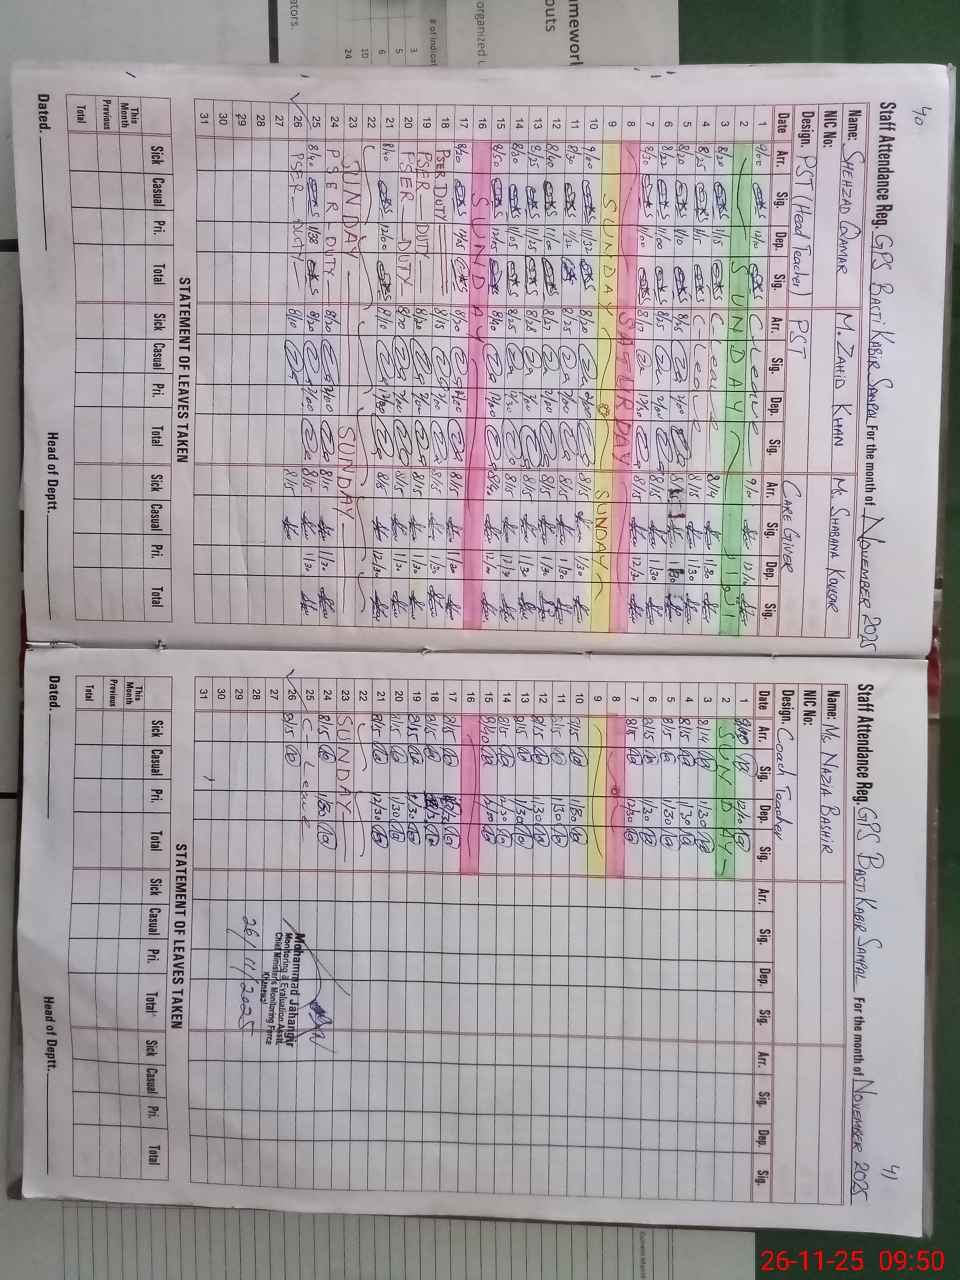 40
Staff Attendance Reg. GPS BASTI KABIR SANPAL For the month of NOVEMBER 2025
Name: SHEHZAD QAMAR M. ZAHID KHAN Ms. SHABANA KAUSAR
NIC No:
Design. PST (Head Teacher) PST CARE GIVER
Date Arr. Sig. Dep. Sig. Arr. Sig. Dep. Sig. Arr. Sig. Dep. Sig.
1 9/00 12/10 C-Leave 9/10 12/10
2 SUNDAY
3 8/20 1/15 C-Leave 8/14 1/30
4 8/25 1/15 C-Leave 8/15 1/30
5 8/20 1/10 8/25 2/00 1/30
6 8/22 1/00 8/25 2/00 8/15 1/30
7 8/30 11/00 8/17 12/30 8/15 12/30
8 SATURDAY
9 SUNDAY SUNDAY
10 9/00 11/32 8/20 2/00 8/15 1/30
11 8/30 8/25 8/15 1/30
12 8/40 11/00 8/22 2/00 8/15 1/30
13 8/25 11/25 8/28 8/15 1/30
14 8/30 11/05 8/25 8/15 12/30
15 8/50 12/05 8/40 12/00
16 SUNDAY
17 8/20 12/05 8/20 2/00 8/15 1/30
18 PSER DUTY 8/15 2/00 8/15 1/30
19 PSER DUTY 8/20 2/00 8/15 1/30
20 PSER DUTY 8/20 2/00 8/15 1/30
21 8/40 12/00 8/10 12/30 8/15 12/30
22
23 SUNDAY SUNDAY
24 PSER DUTY 8/20 2/00 8/15 1/30
25 8/40 1/38 8/20 2/00 8/15 1/30
26 PSER DUTY 8/10 8/15
27
28
29
30
31
STATEMENT OF LEAVES TAKEN
Sick Casual Pri. Total Sick Casual Pri. Total Sick Casual Pri. Total
This Month
Previous
Total
Dated. Head of Deptt.
41
Staff Attendance Reg. GPS BASTI KABIR SANPAL For the month of NOVEMBER 2025
Name: Ms NAZIA BASHIR
NIC No:
Design. Coach Teacher
Date Arr. Sig. Dep. Sig. Arr. Sig. Dep. Sig. Arr. Sig. Dep. Sig.
1 9/00 12/10
2 SUNDAY
3 8/14 1/30
4 8/15 1/30
5 8/15 1/30
6 8/15 1/30
7 8/15 12/30
8
9
10 8/15 1/30
11 8/15 1/30
12 8/15 1/30
13 8/15 1/30
14 8/15 12/30
15 8/40 12/00
16
17 8/15
18 8/15
19 8/15 1/30
20 8/15 1/30
21 8/15 12/30
22
23 SUNDAY
24 8/15 1/30
25 C-Leave
26 8/15
27
28
29
30
31
Mohammad Jahangir
Monitoring & Evaluation Asstt.
Chief Minister's Monitoring Force
Khanewal
26/11/2025
STATEMENT OF LEAVES TAKEN
Sick Casual Pri. Total Sick Casual Pri. Total Sick Casual Pri. Total
This Month
Previous
Total
Dated. Head of Deptt.
26-11-25 09:50